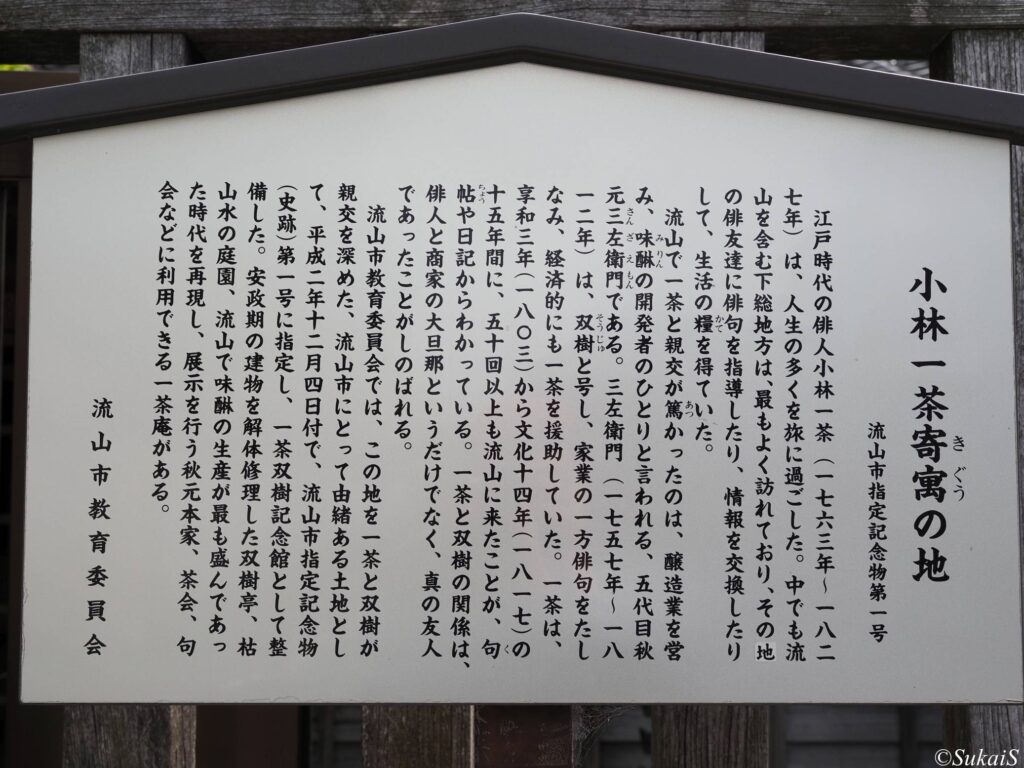 小林一茶寄寓の地
きぐう
流山市指定記念物第一号
江戸時代の俳人小林一茶（一七六三年～一八二
七年）は、人生の多くを旅に過ごした。中でも流
山を含む下総地方は、最もよく訪れており、その地
の俳友達に俳句を指導したり、情報を交換したり
して、生活の糧を得ていた。
かて
流山で一茶と親交が篤かったのは、醸造業を営
あつ
み、味醂の開発者のひとりと言われる、五代目秋
みりん
元三左衛門である。三左衛門（一七五七年～一八
さんざえもん
一二年）は、双樹と号し、家業の一方俳句をたし
そうじゅ
なみ、経済的にも一茶を援助していた。一茶は、
享和三年（一八〇三）から文化十四年（一八一七）の
十五年間に、五十回以上も流山に来たことが、句
く
帖や日記からわかっている。一茶と双樹の関係は、
ちょう
俳人と商家の大旦那というだけでなく、真の友人
であったことがしのばれる。
流山市教育委員会では、この地を一茶と双樹が
親交を深めた、流山市にとって由緒ある土地とし
て、平成二年十二月四日付で、流山市指定記念物
（史跡）第一号に指定し、一茶双樹記念館として整
備した。安政期の建物を解体修理した双樹亭、枯
山水の庭園、流山で味醂の生産が最も盛んであっ
た時代を再現し、展示を行う秋元本家、茶会、句
会などに利用できる一茶庵がある。
流山市教育委員会
©SukaiS